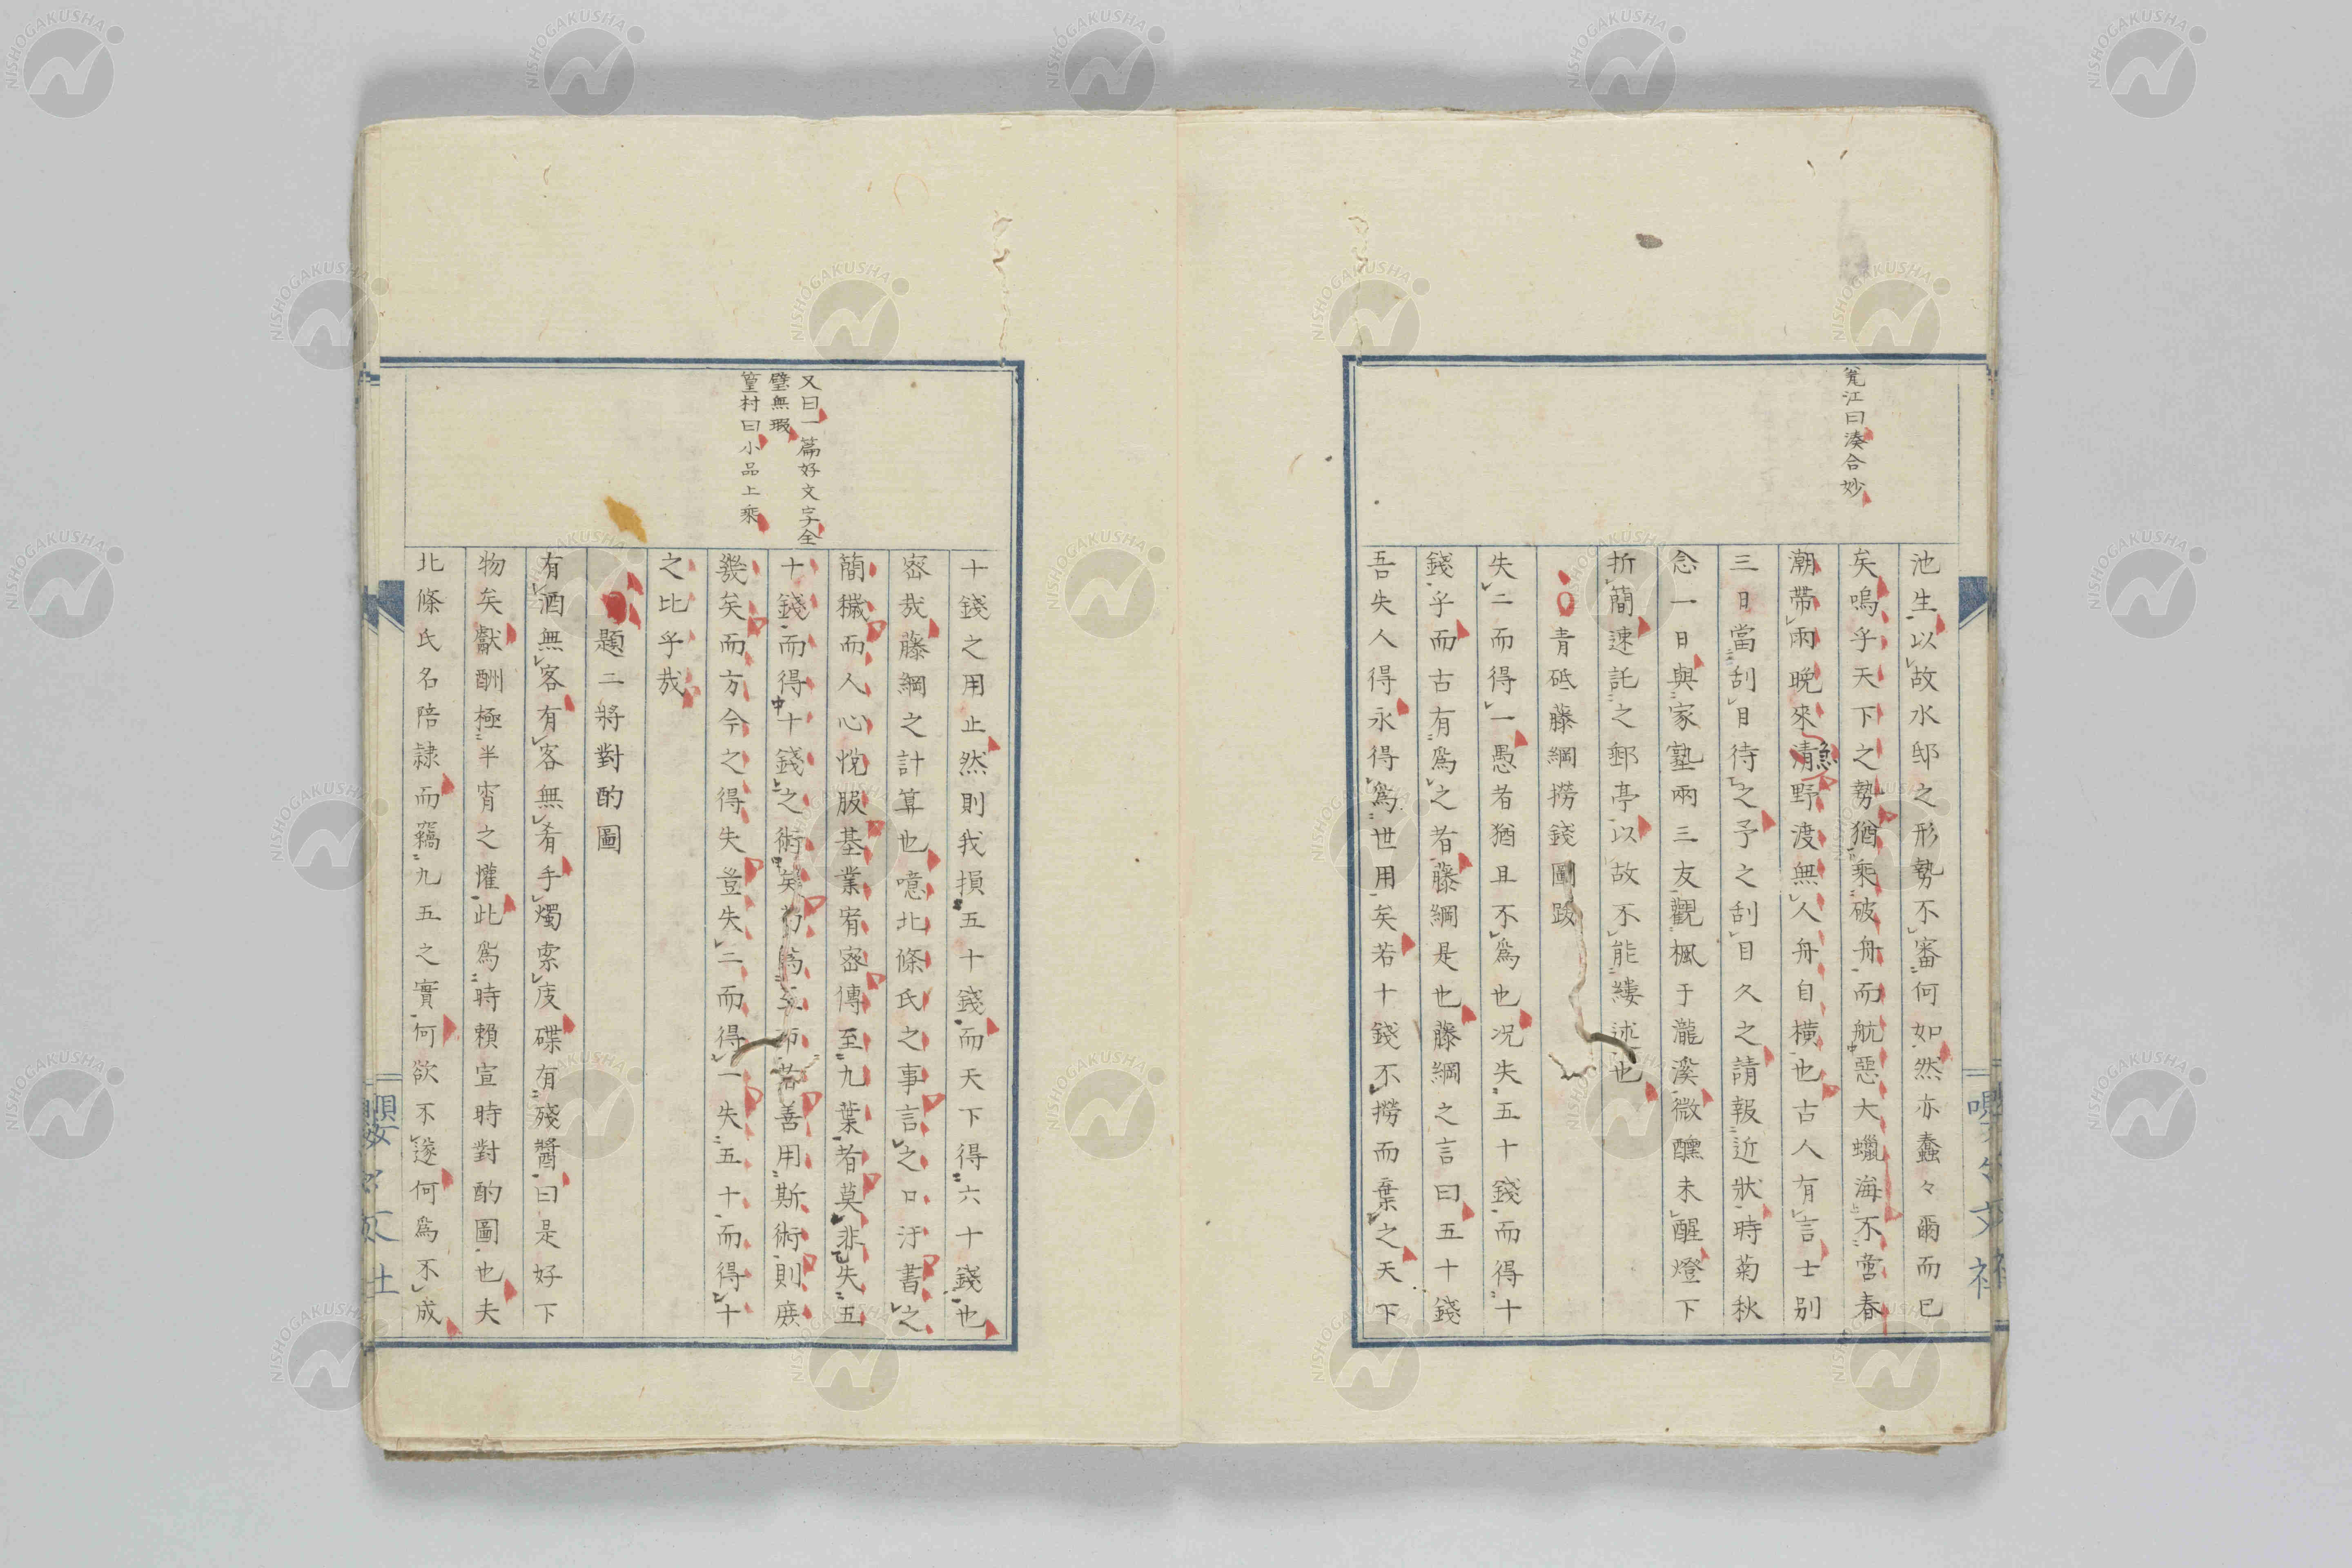 甕江曰湊合妙
池生以故水邸之形勢不審何如然亦蠢々爾而已
矣嗚乎天下之勢猶乘破舟而航惡大蠟海不啻春
潮帶雨晚來急野渡無人舟自横也古人有言士别
三日當刮目待之予之刮目久之請報近狀時菊秋
念一日與家塾兩三友觀楓于瀧溪微醺未醒燈下
折簡速託之郵亭以故不能縷述也
青砥藤綱撈錢圖跋
失二而得一愚者猶且不爲也况失五十錢而得十
錢乎而古有爲之者藤綱是也藤綱之言曰五十錢
吾失人得永得爲世用矣若十錢不撈而棄之天下
又曰一篇好文字全
璧無瑕
篁村曰小品上乘
十錢之用止然則我損五十錢而天下得六十錢也
密哉藤綱之計算也噫北條氏之事言之口汙書之
簡穢而人心悅服基業宥密傳至九葉者莫非失五
十錢而得十錢之術矣苟爲至市若善用斯術則庶
幾矣而方今之得失豈失二而得一失五十而得十
之比乎哉
題二將對酌圖
有酒無客有客無肴手燭索庋碟有殘醬曰是好下
物矣獻酬極半宵之懽此爲時賴宣時對酌圖也夫
北條氏名陪隷而竊九五之實何欲不遂何爲不成